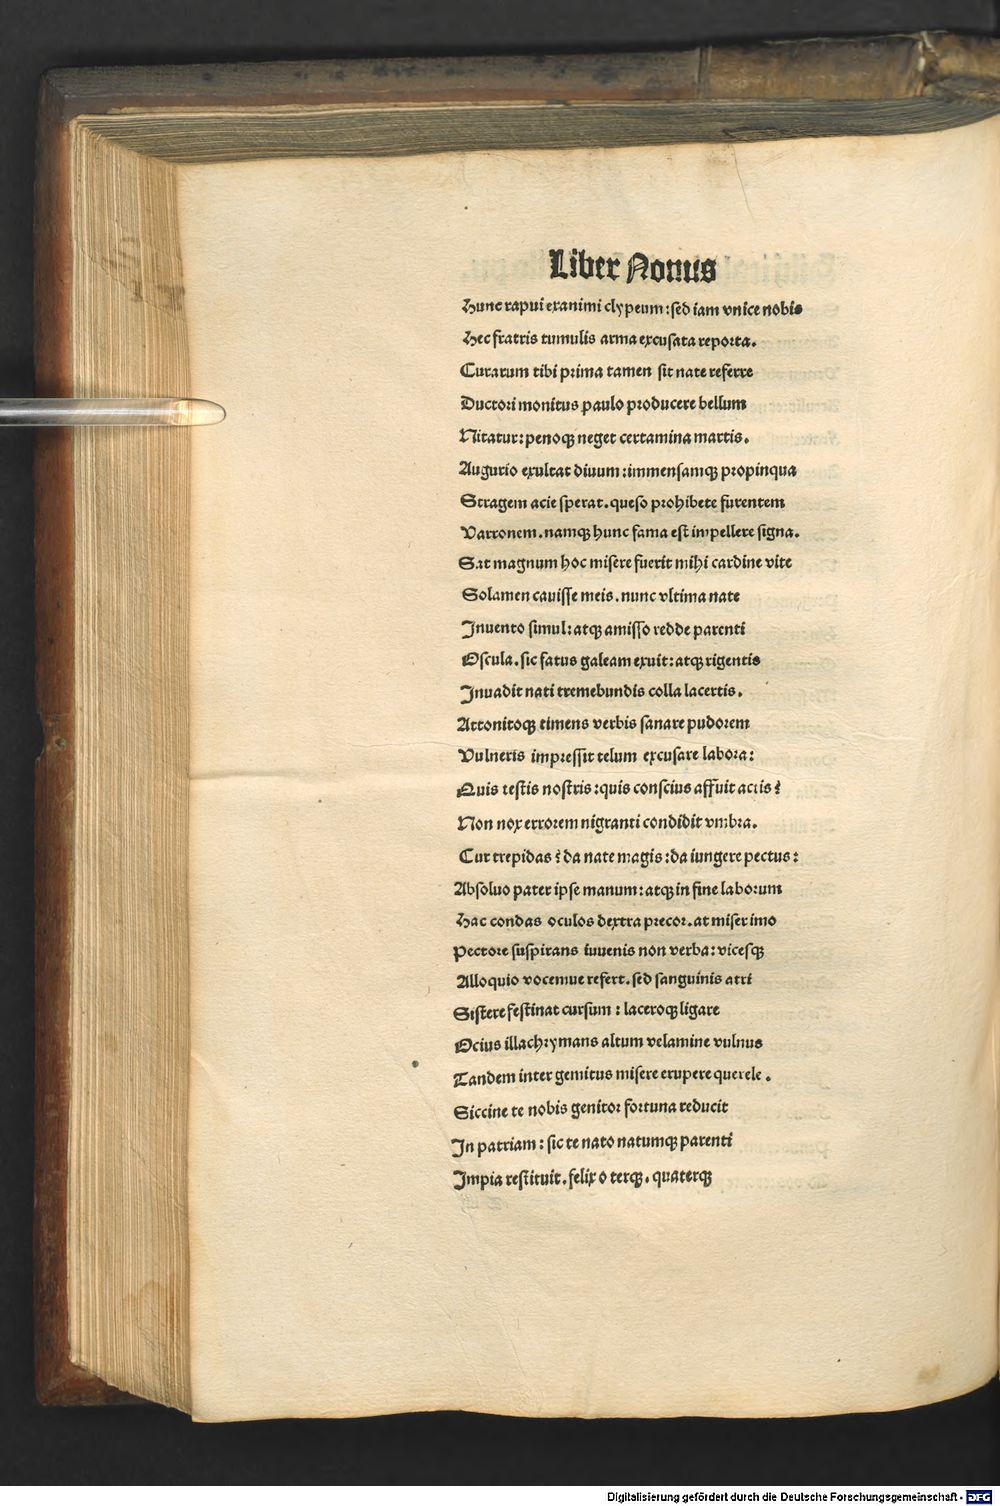 Liber Nonus
Hunc rapui exanimi clypeum: sed iam vnice nobis
Hec fratris tumulis arma excusata reporta.
Curarum tibi prima tamen sit nate referre
Ductori monitus paulo producere bellum
Nitatur: penoqꝫ neget certamina martis.
Augurio exultat diuum: immensamqꝫ propinqua
Stragem acie sperat. queso prohibete furentem
Varronem. namqꝫ hunc fama est impellere signa.
Sat magnum hoc misere fuerit mihi cardine vite
Solamen cauisse meis. nunc vltima nate
Inuento simul: atqꝫ amisso redde parenti
Oscula. sic fatus galeam exuit: atqꝫ rigentis
Inuadit nati tremebundis colla lacertis.
Attonitoqꝫ timens verbis sanare pudorem
Vulneris impressit telum excusare labora:
Quis testis nostris: quis conscius affuit actis?
Non nox errorem nigranti condidit vmbra.
Cur trepidas? da nate magis: da iungere pectus:
Absoluo pater ipse manum: atqꝫ in fine laborum
Hac condas oculos dextra precor. at miserimo
Pectore suspirans iuuenis non verba: vicesqꝫ
Alloquio vocemue refert. sed sanguinis atri
Sistere festinat cursum: laceroqꝫ ligare
Ocius illachrymans altum velamine vulnus
Tandem inter gemitus misere erupere querele.
Siccine te nobis genitor fortuna reducit
In patriam: sic te nato natumqꝫ parenti
Impia restituit. felix o terqꝫ. quaterqꝫ
Digitalisierung gefördert durch die Deutsche Forschungsgemeinschaft - DFG